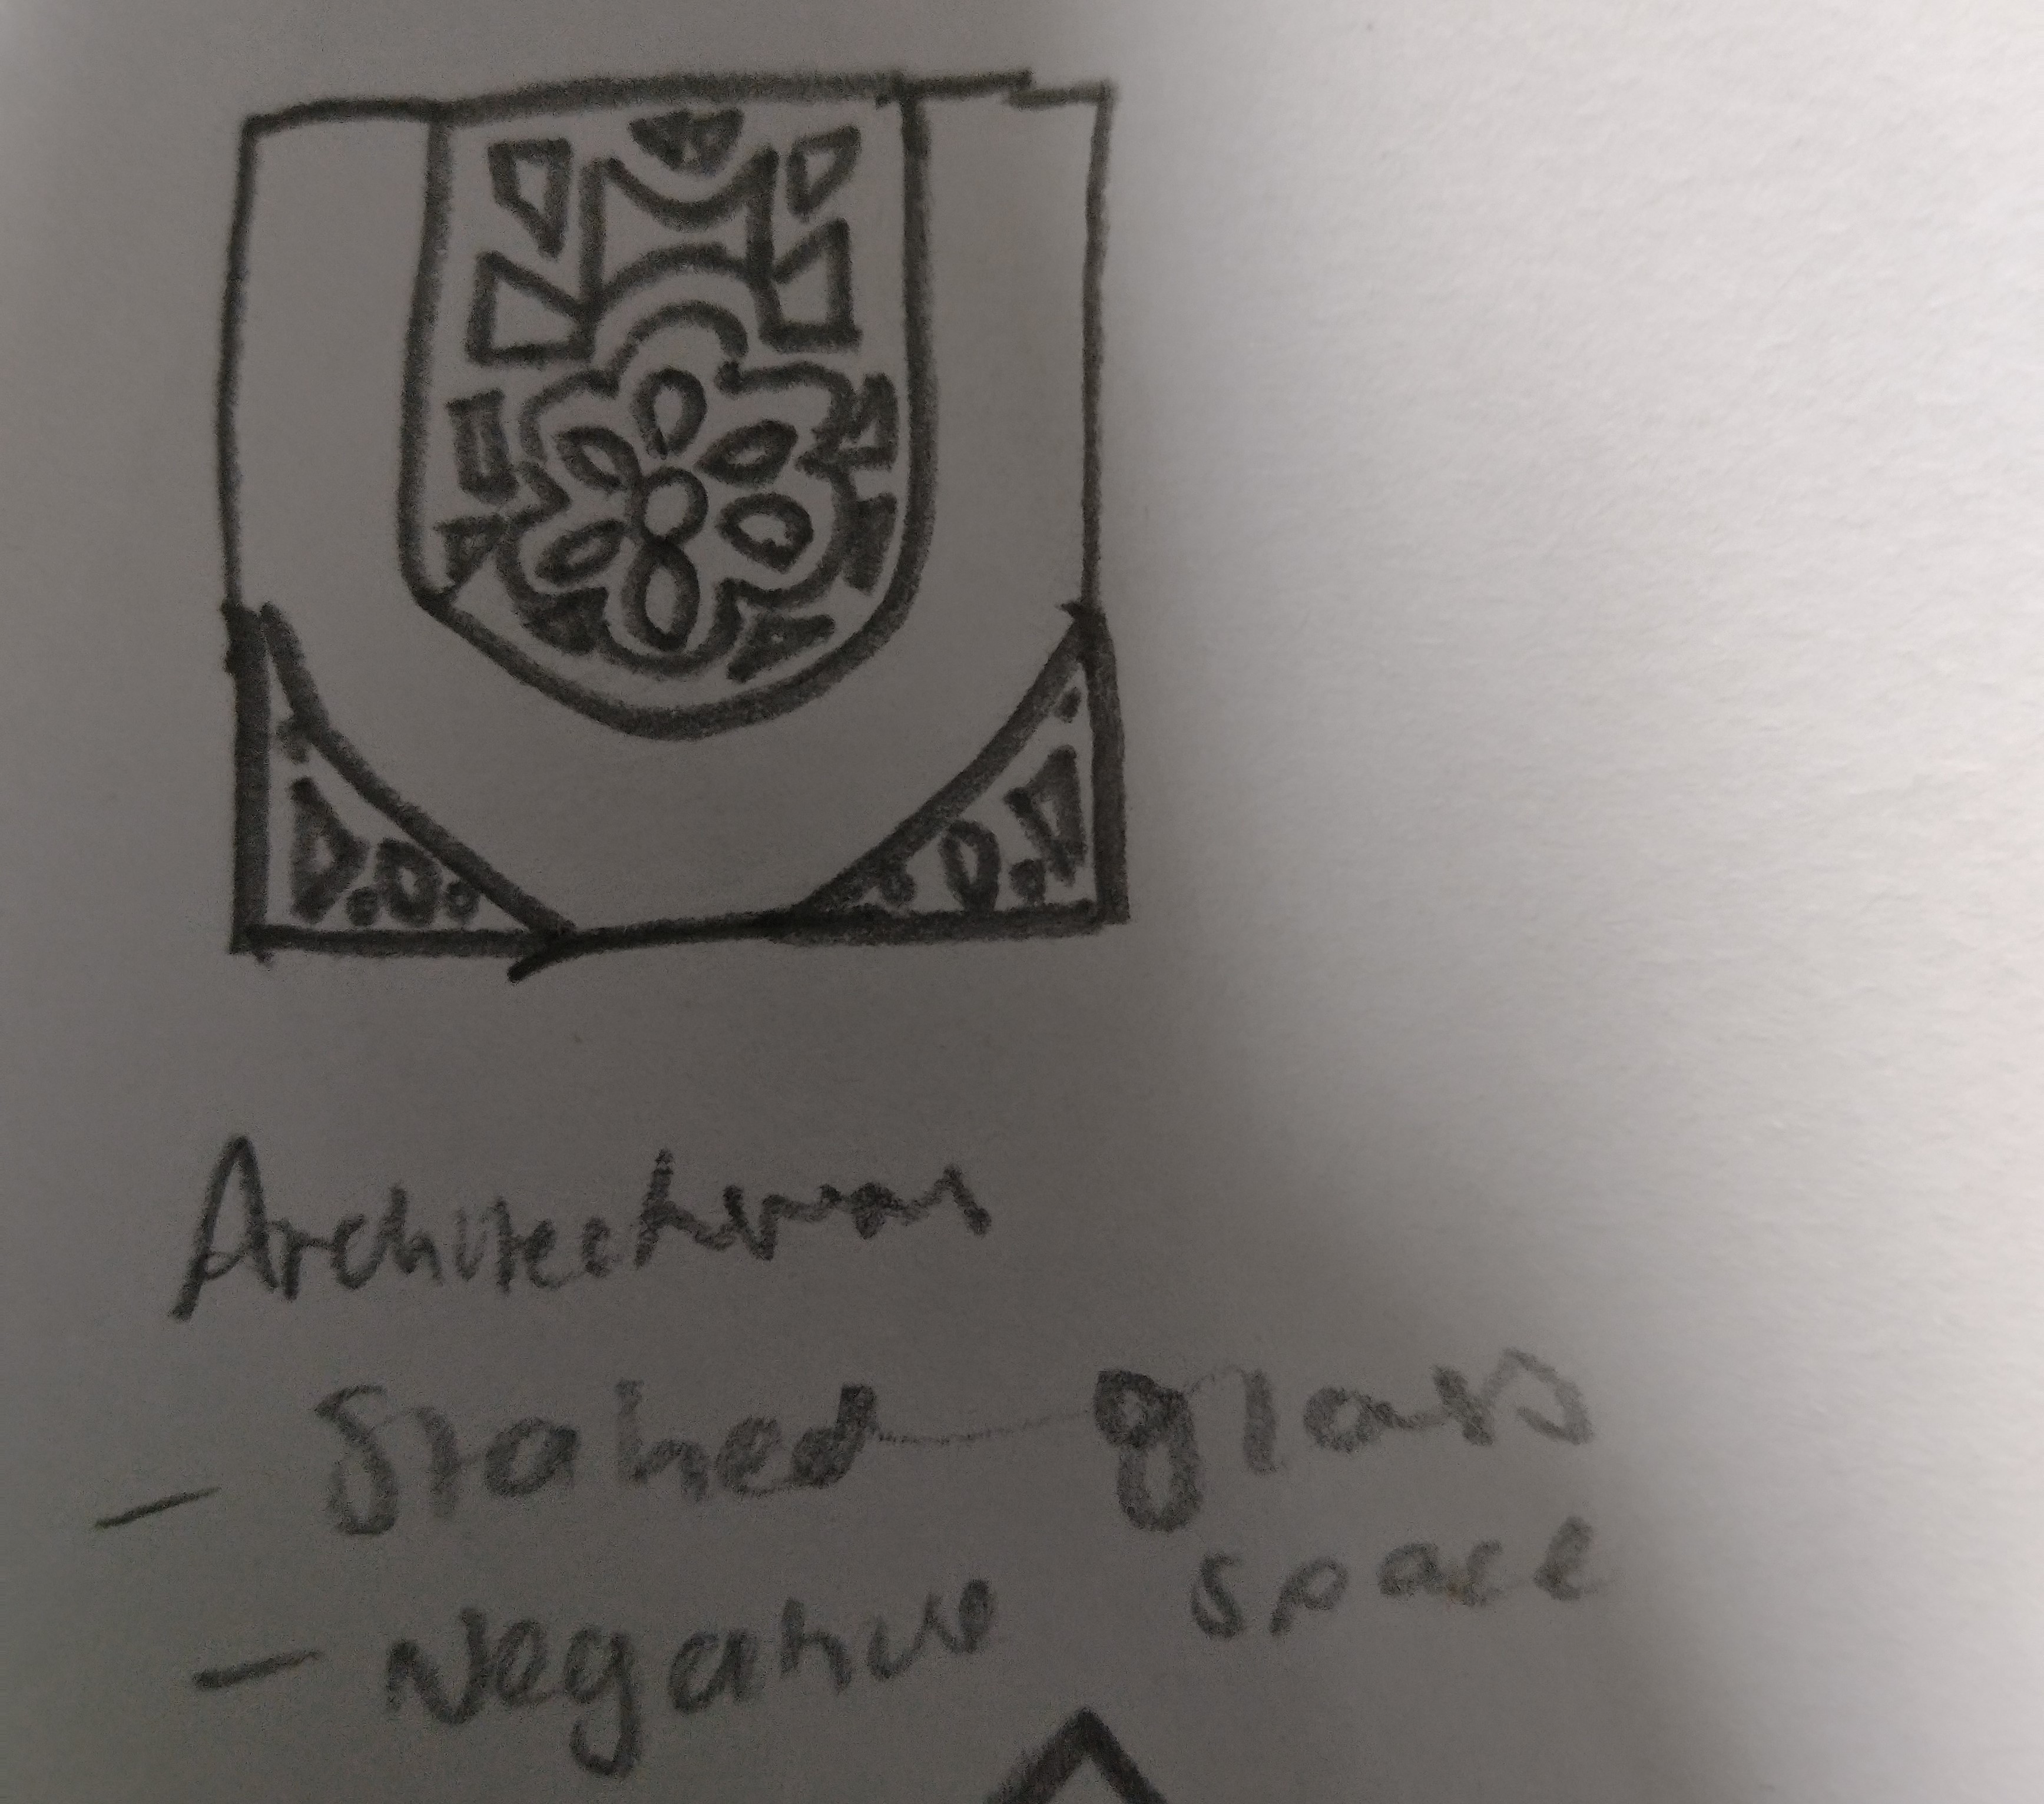 Architectural
- Stained glass
- Negative space